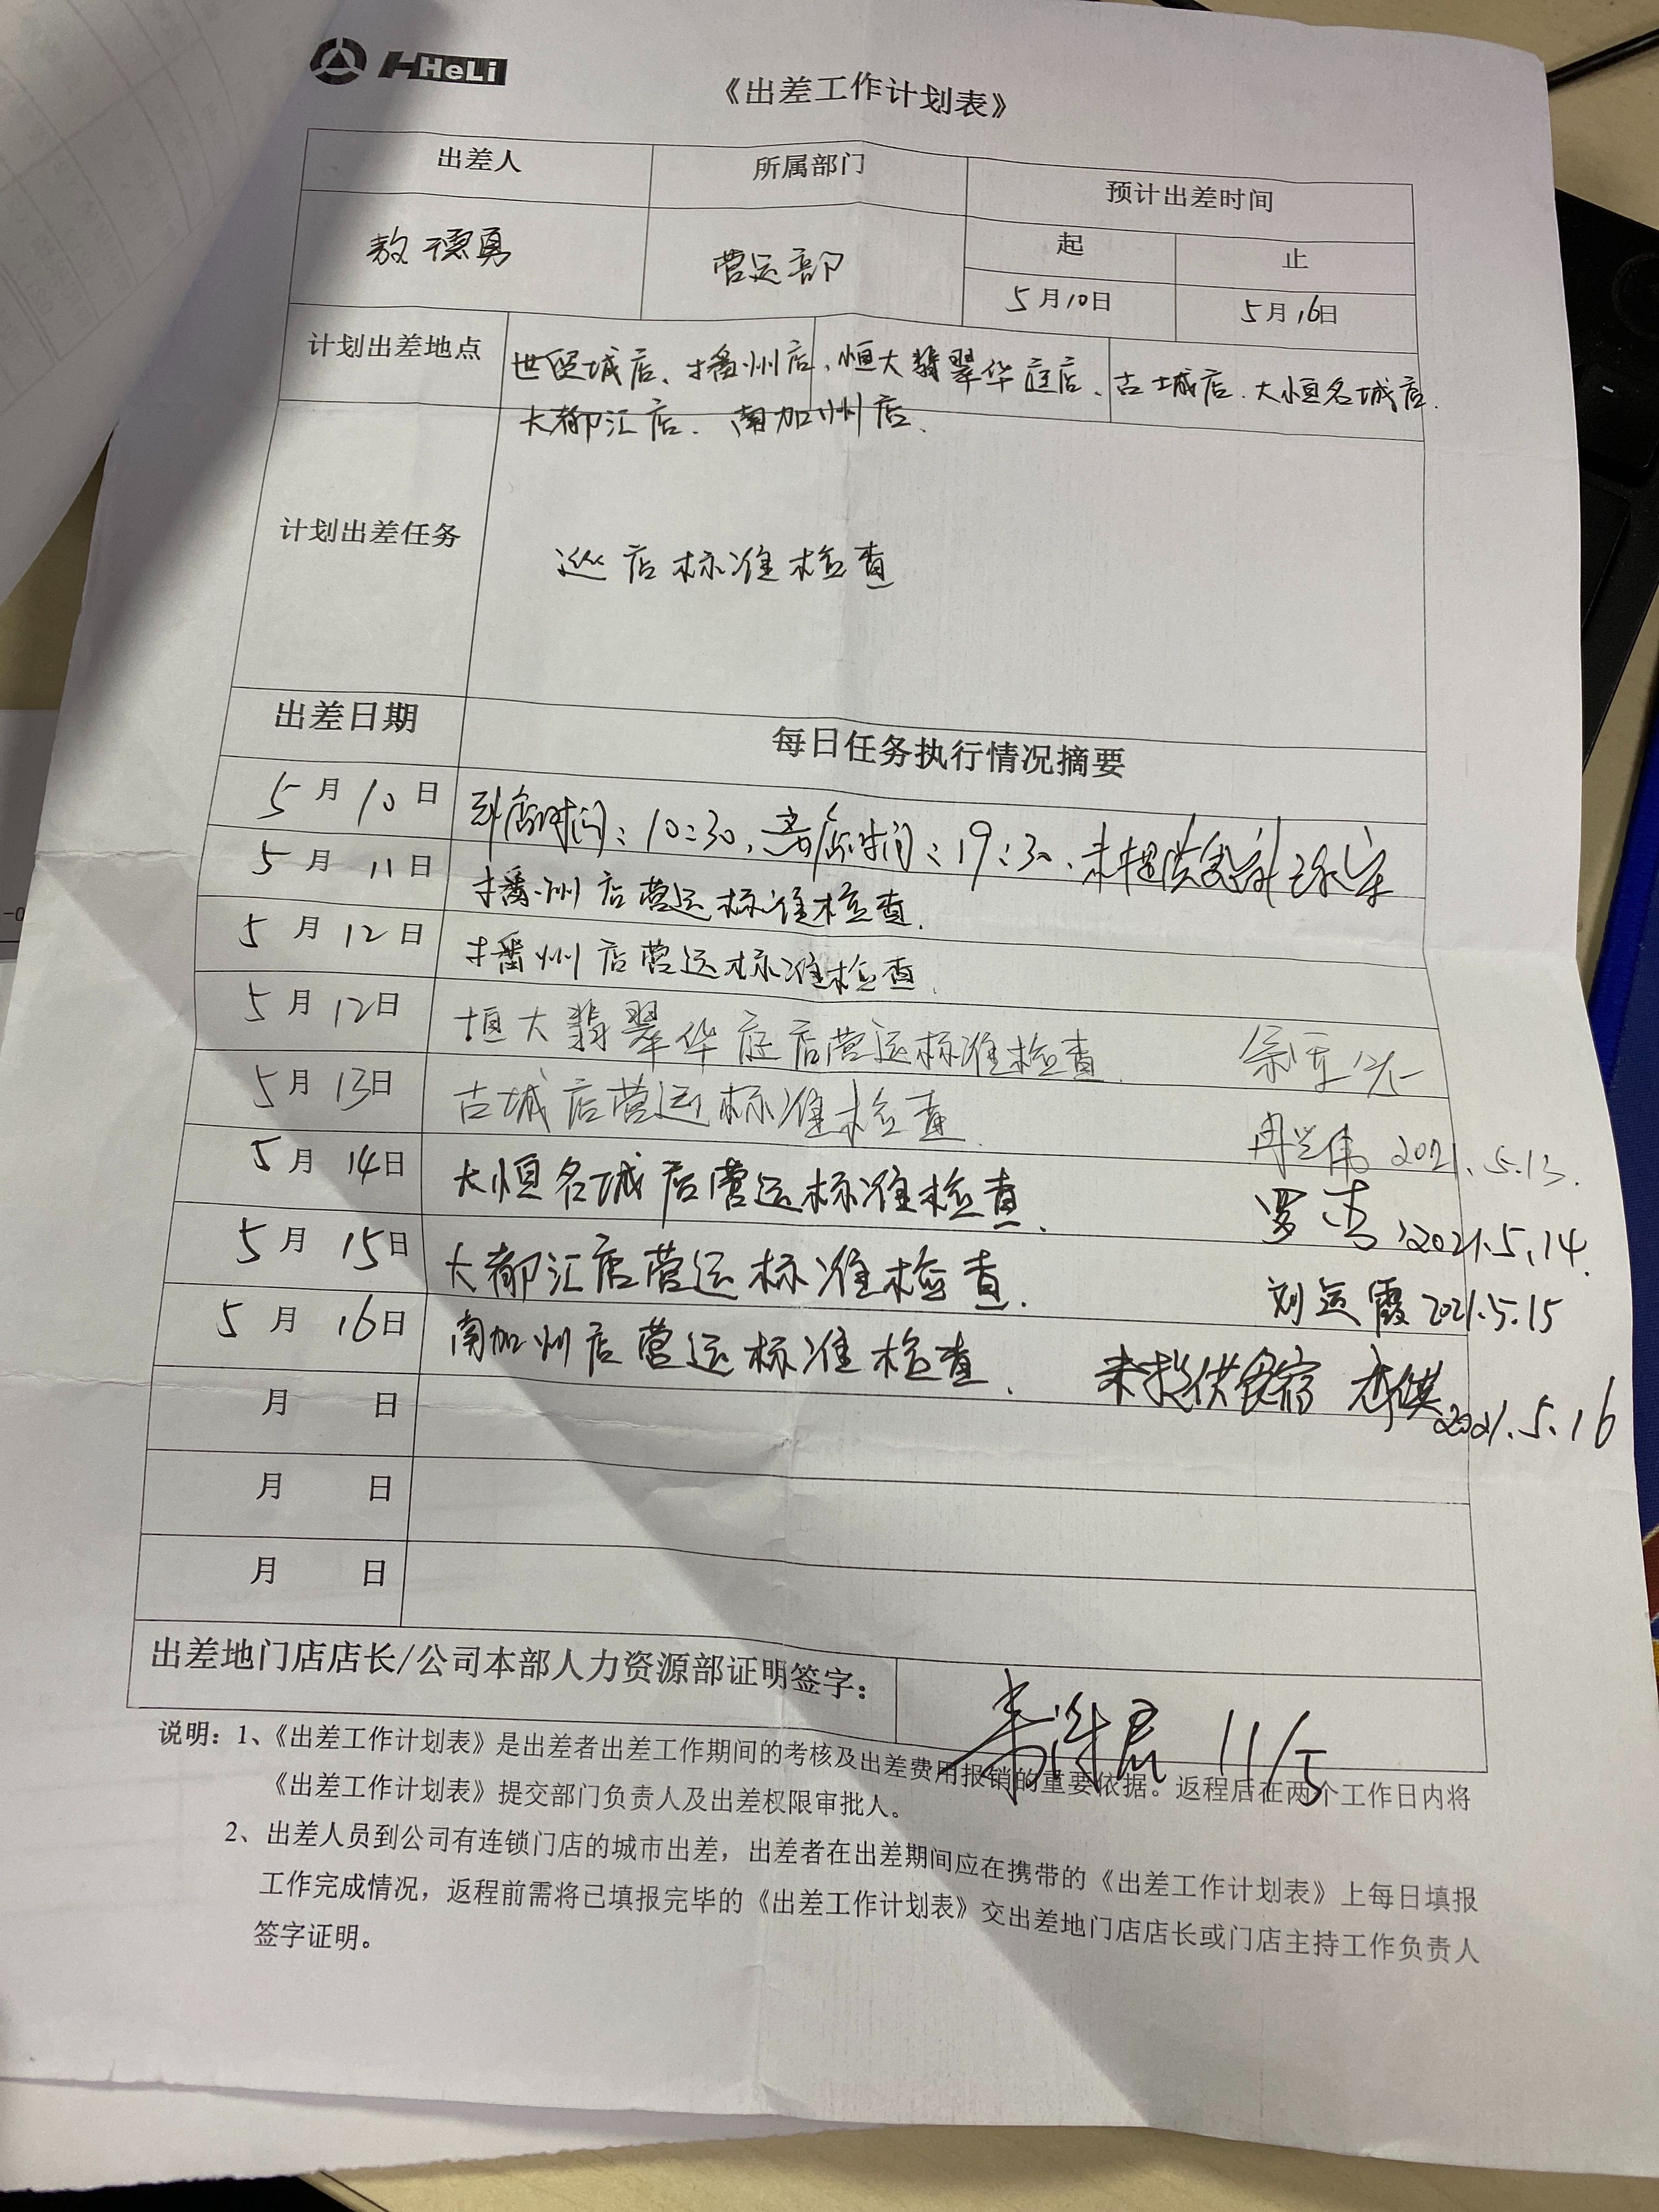 HeLi
《出差工作计划表》
出差人 所属部门 预计出差时间
起 止
敖德勇 营运部 5月10日 5月16日
计划出差地点 世贸城店、播州店、恒大翡翠华庭店、古城店、大恒名城店、
大都汇店、南加州店、
计划出差任务 巡店标准检查
出差日期 每日任务执行情况摘要
5月10日 到店时间:10:30、离店时间:19:30、未提供食宿
5月11日 播州店营运标准检查、
5月12日 播州店营运标准检查、
5月12日 恒大翡翠华庭店营运标准检查、
5月13日 古城店营运标准检查、 冉兴伟 2021.5.13.
5月14日 大恒名城店营运标准检查、 罗杰 2021.5.14.
5月15日 大都汇店营运标准检查、 刘运霞 2021.5.15
5月16日 南加州店营运标准检查、 未提供食宿 2021.5.16
月 日
月 日
月 日
出差地门店店长/公司本部人力资源部证明签字: 11/5
说明:1、《出差工作计划表》是出差者出差工作期间的考核及出差费用报销的重要依据。返程后在两个工作日内将
《出差工作计划表》提交部门负责人及出差权限审批人。
2、出差人员到公司有连锁门店的城市出差,出差者在出差期间应在携带的《出差工作计划表》上每日填报
工作完成情况,返程前需将已填报完毕的《出差工作计划表》交出差地门店店长或门店主持工作负责人
签字证明。